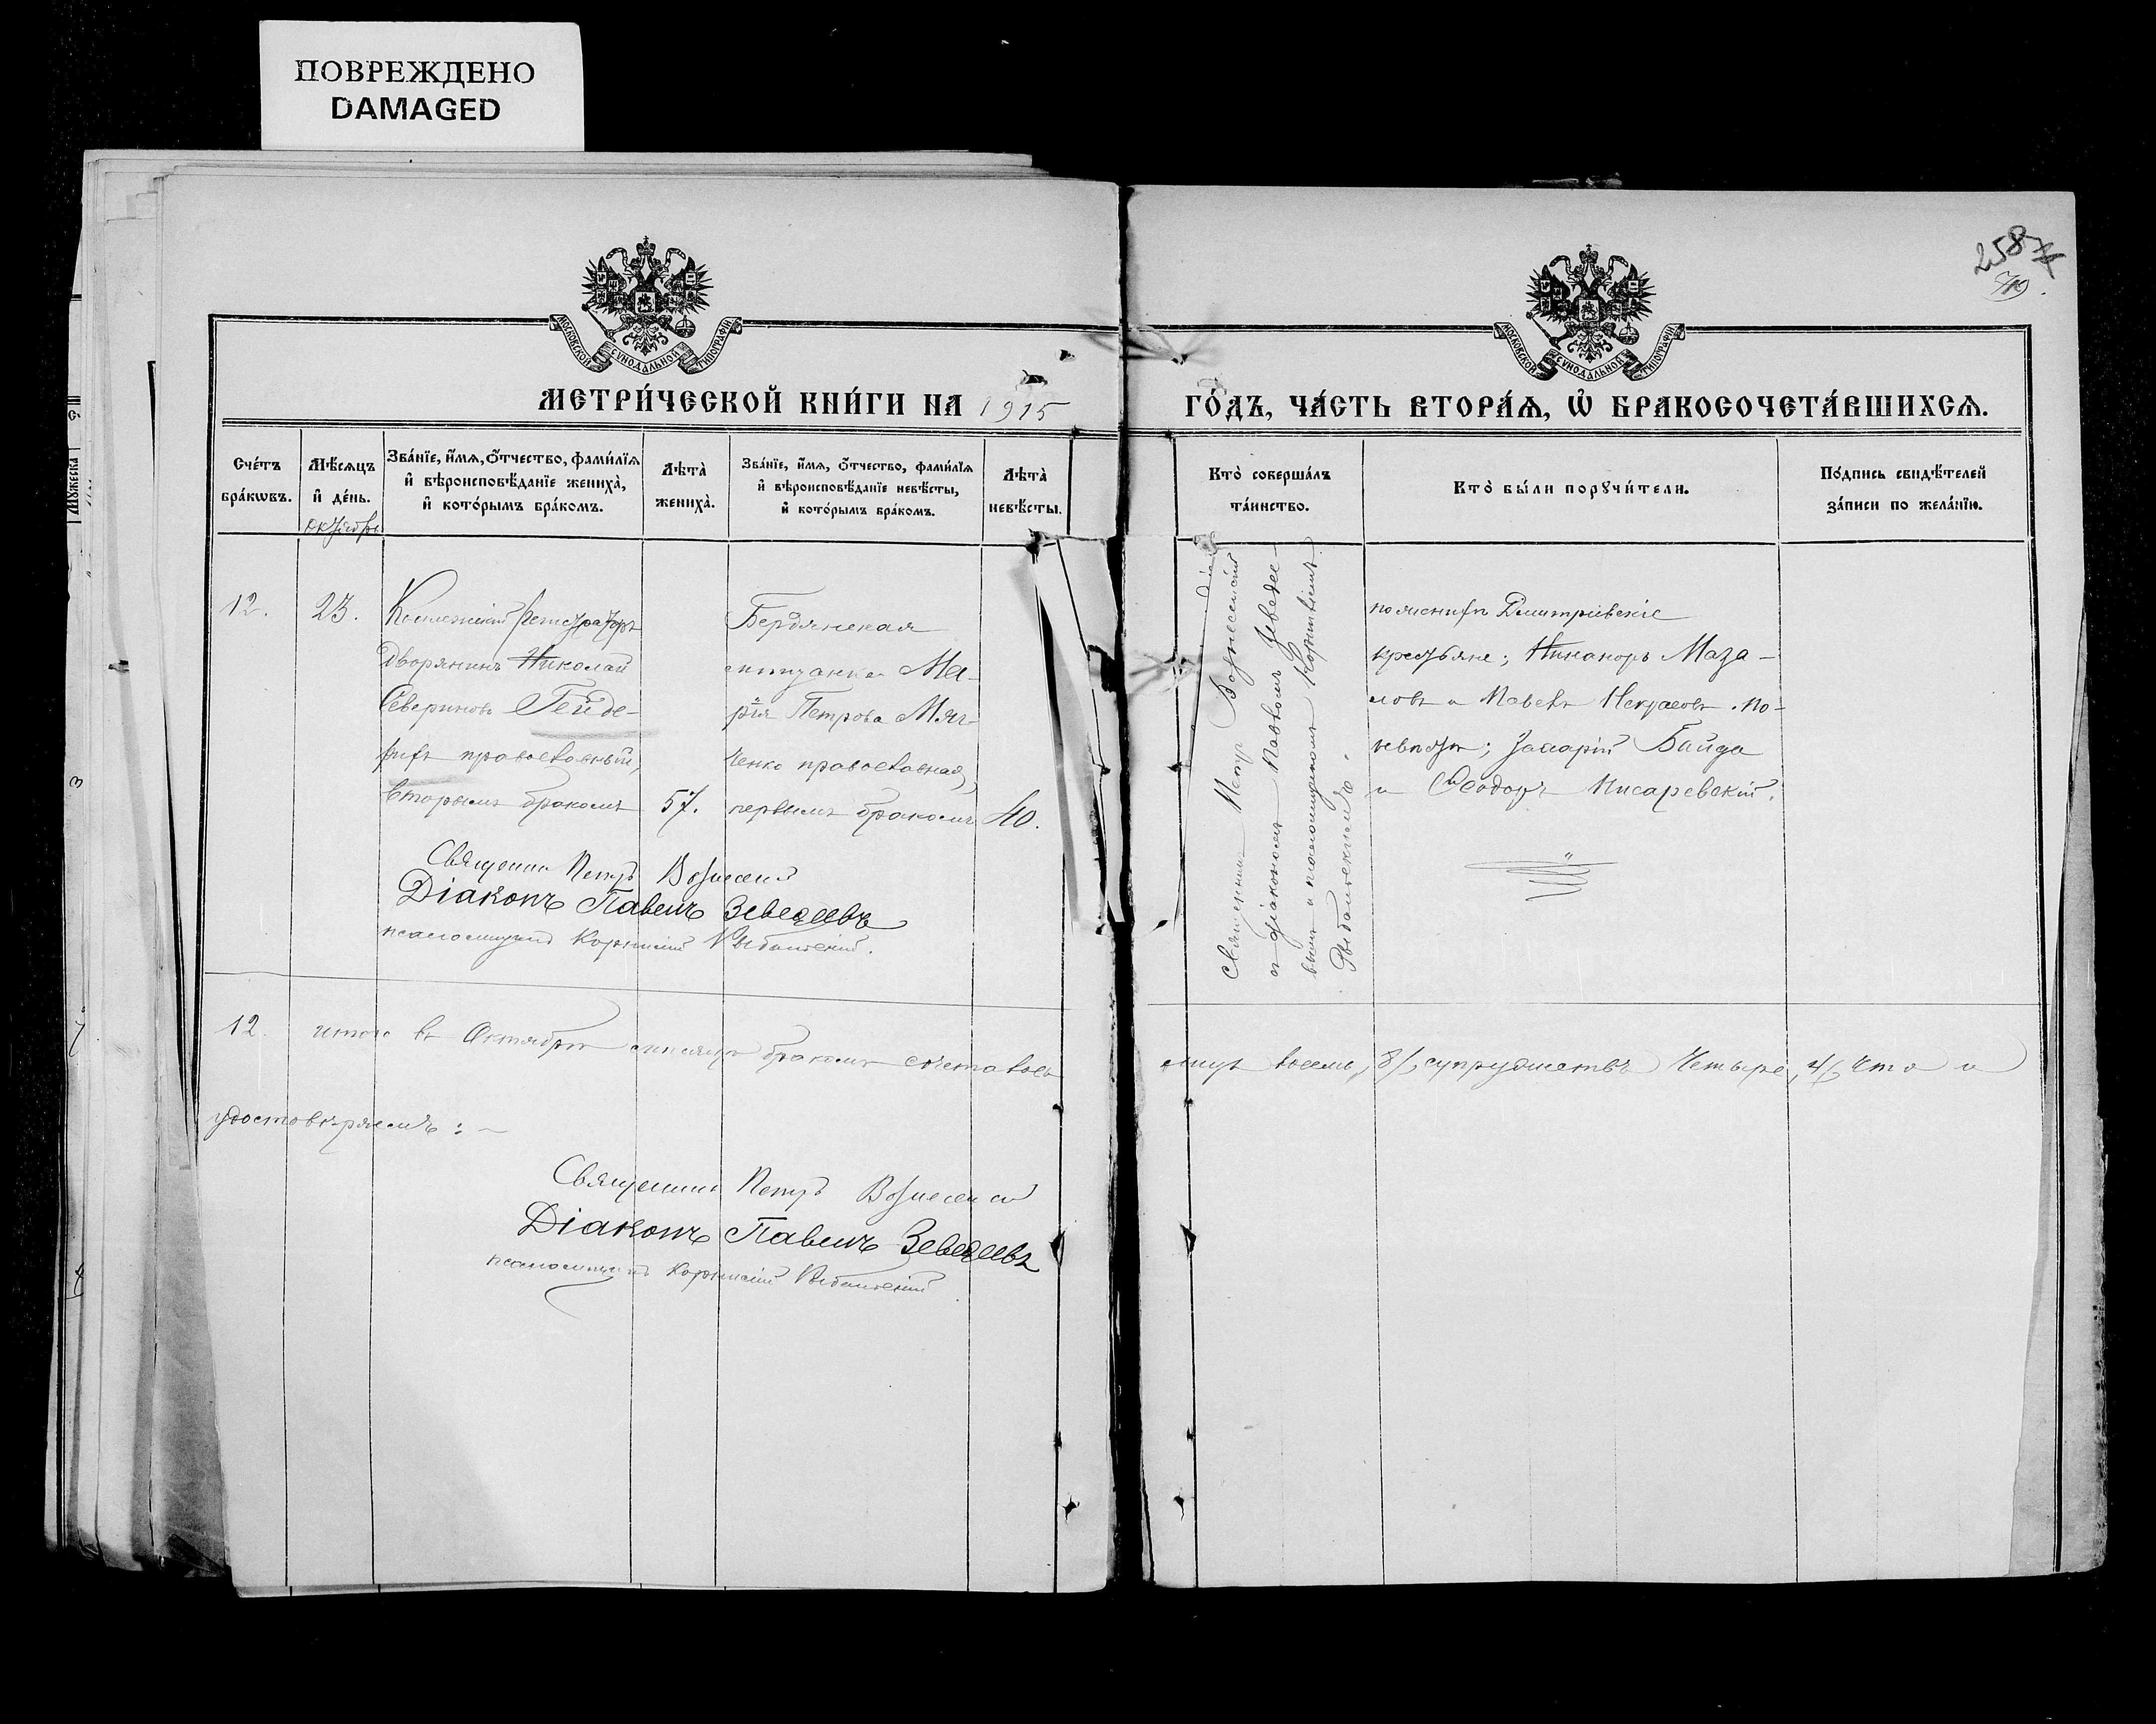 ПОВРЕЖДЕНО
DAMAGED
258
МОСКОВСКОЙ СѴНОДАЛЬНОЙ ТИПОГРАФІИ
МОСКОВСКОЙ СѴНОДАЛЬНОЙ ТИПОГРАФІИ
МЕТРИ́ЧЕСКОЙ КНИ́ГИ НА 1915
ГО́ДЪ, ЧА́СТЬ ВТОРА́Ѧ, Ѽ БРАКОСОЧЕТА́ВШИХСѦ.
Сче́тъ
бра́кѡвъ.
Мѣ́сѧцъ
и҆ де́нь.
Октябрь
Зва́нїе, и҆́мѧ, ѻ҆́тчество, фами́лїѧ
и҆ вѣроисповѣ́данїе жениха̀,
и҆ кото́рымъ бра́комъ.
Лѣта̀
жениха̀.
Зва́нїе, и҆́мѧ, ѻ҆́тчество, фами́лїѧ
и҆ вѣроисповѣ́данїе невѣ́сты,
и҆ кото́рымъ бра́комъ.
Лѣта̀
невѣ́сты.
Кто̀ соверша́лъ
та́инство.
Кто̀ бы́ли порꙋчи́тели.
По́дпись свидѣ́телей
за́писи по жела́нїю.
12.
23.
Коллежскій Регистраторъ
Дворянинъ Николай
Севериновъ Гейде-
рихъ православный,
вторымъ бракомъ
57.
Бердянская
мѣщанка Ма-
рія Петрова Мяг-
ченко православная,
первымъ бракомъ
40.
Священникъ Петръ Вознесенскій
съ діакономъ Павломъ Зеведее-
вымъ и псаломщикомъ Корниліемъ
по женихѣ Дмитріевскіе
крестьяне; Никаноръ Маза-
ловъ и Павелъ Некрасовъ. по-
невѣстѣ; Захарій Байда
и Ѳеодоръ Писаревскій.
Священникъ Петръ Вознесенскій
Діаконъ Павелъ Зеведеевъ
псаломщикъ Корнилій
12. итого въ Октябрѣ мѣсяцѣ бракомъ сочетавш
ихся восемь, 8/, супружествъ Четыре, 4/, Что и
удостовѣряемъ: —
Священникъ Петръ Вознесенскій
Діаконъ Павелъ Зеведеевъ
псаломщикъ Корнилій